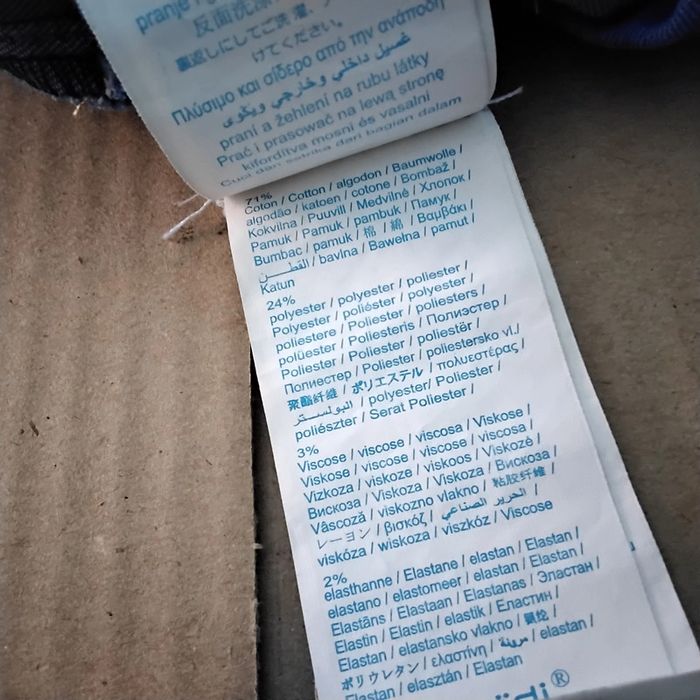 pranje i
反面洗涤
裏返しにしてご洗濯、
けてください。
Πλύσιμο και σίδερο από την ανάποδη
غسيل داخلي وخارجي ويكوى
praní a žehlení na rubu látky
Prać i prasować na lewą stronę
kifordítva mosni és vasalni
Cuci dan setrika dari bagian dalam
71%
Coton / Cotton / algodon / Baumwolle /
algodão / katoen / cotone / Bombaž /
Kokvilna / Puuvill / Medvilnė / Хлопок /
Pamuk / Pamuk / pambuk / Памук /
Bumbac / pamuk / 棉 / 綿 / Βαμβάκι /
القطن / bavlna / Bawełna / pamut /
Katun
24%
polyester / polyester / poliester /
Polyester / poliéster / polyester /
poliestere / Poliester / poliesters /
polüester / Poliesteris / Полиэстер /
Poliester / Poliester / poliestër /
Полиестер / Poliester / poliestersko vl./
聚酯纤维 / ポリエステル / πολυεστέρας /
البوليستر / polyester/ Poliester /
poliészter / Serat Poliester /
3%
Viscose / viscose / viscosa / Viskose /
Viskose / viscose / viscose / viscosa /
Vizkoza / viskoze / viskoos / Viskozė /
Вискоза / Viskoza / Viskoza / Вискоза /
Vâscoză / viskozno vlakno / 粘胶纤维 /
レーヨン / βισκόζ / الحرير الصناعي /
viskóza / wiskoza / viszkóz / Viscose
2%
elasthanne / Elastane / elastan / Elastan /
elastano / elastomeer / elastan / Elastan /
Elastāns / Elastaan / Elastanas / Эластан /
Elastin / Elastin / elastik / Еластин /
Elastan / elastansko vlakno / 氨纶 /
ポリウレタン / ελαστίνη / مرونة / elastan /
Elastan / elasztán / Elastan
®